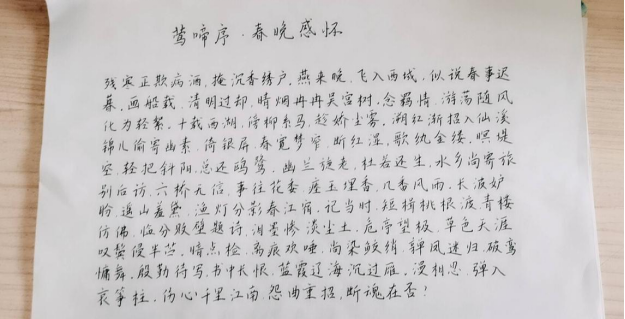 莺啼序·春晚感怀
残寒正欺病酒，掩沉香绣户，燕来晚，飞入西城，似说春事迟
暮，画船载，清明过却，晴烟冉冉吴宫树，念羁情，游荡随风
化为轻絮，十载西湖，傍柳系马，趁娇尘雾，溯红渐招入仙溪
锦儿偷寄幽素，倚银屏，春宽梦窄，断红湿，歌纨金缕，暝堤
空，轻把斜阳，总还鸥鹭，幽兰旋老，杜若还生，水乡尚寄旅
别后访，六桥无信，事往花委，瘗玉埋香，几番风雨，长波妒
盼，遥山羞黛，渔灯分影春江宿，记当时，短楫桃根渡，青楼
仿佛，临分败壁题诗，泪墨惨淡尘土，危亭望极，草色天涯
叹鬓侵半苎，暗点检，离痕欢唾，尚染鲛绡，亸凤迷归，破鸾
慵舞，殷勤待写，书中长恨，蓝霞辽海沉过雁，漫相思，弹入
哀筝柱，伤心千里江南，怨曲重招，断魂在否！